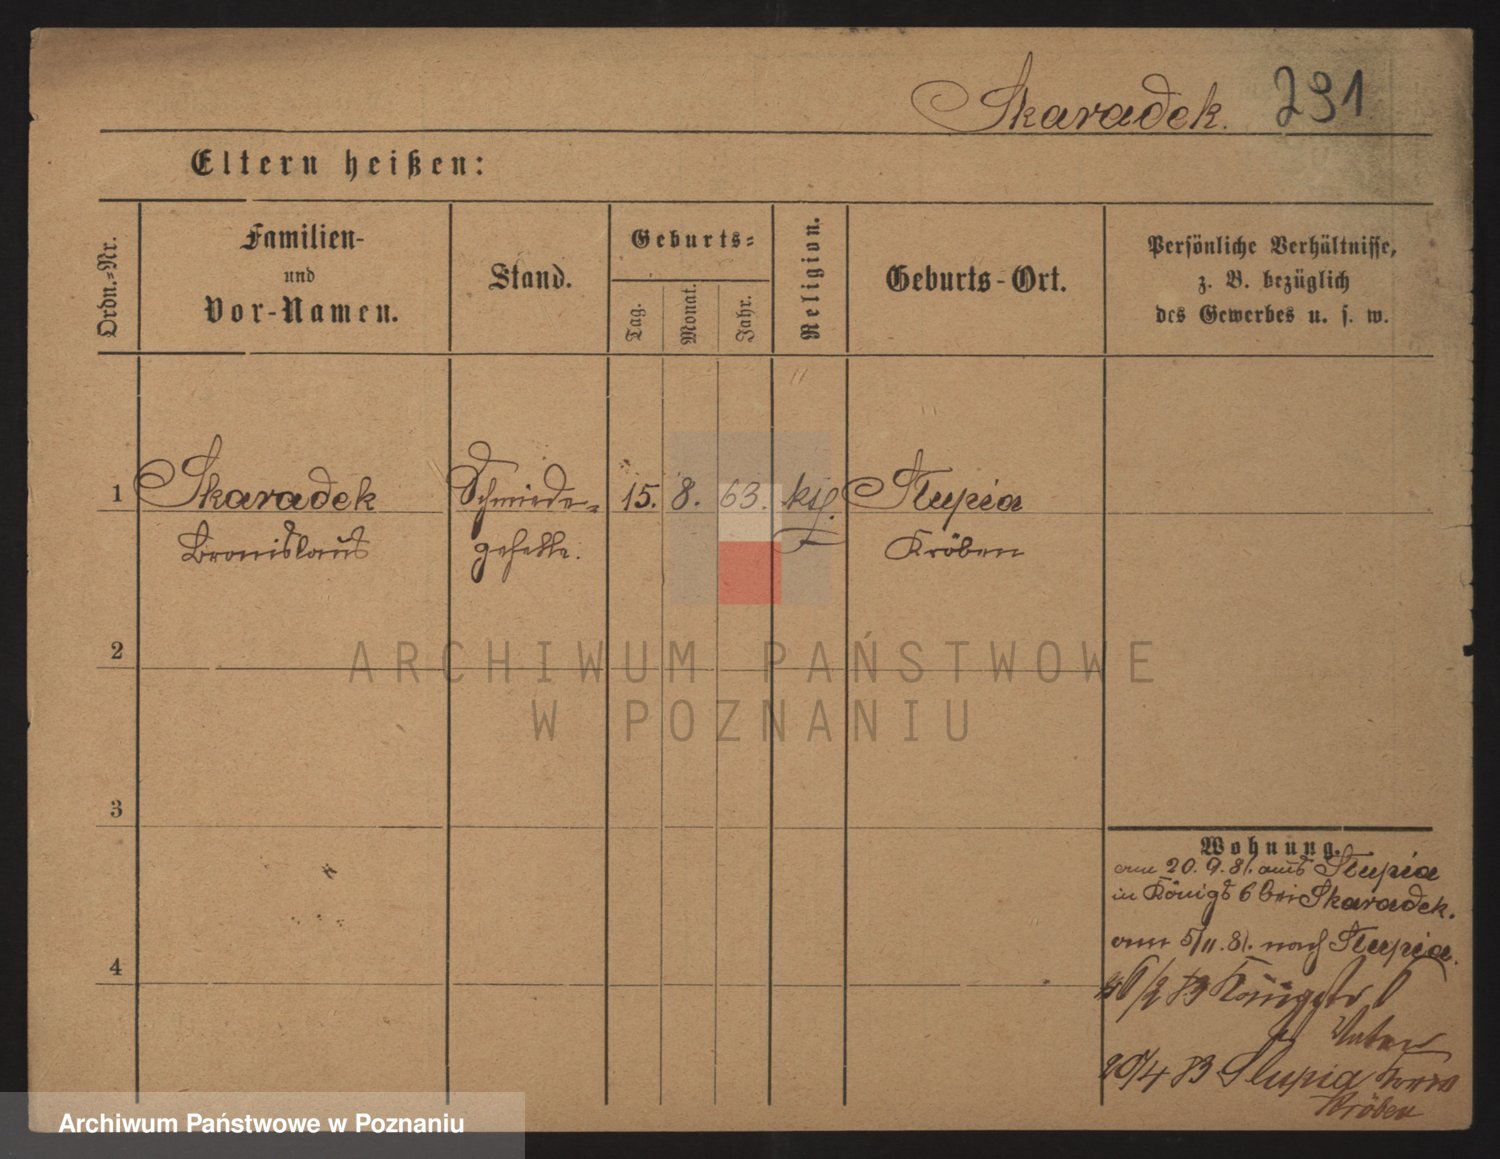 Skaradek. 291
Eltern heißen:
Ordn.-Nr.
Familien-
und
Vor-Namen.
Stand.
Geburts-
Tag.
Monat.
Jahr.
Religion.
Geburts-Ort.
Persönliche Verhältnisse,
z. B. bezüglich
des Gewerbes u. s. w.
1 Skaradek Schmiede- 15. 8. 63. kth. Slupia
Bronislaus geselle. Kröben
2
3
4
Wohnung.
am 20. 9. 81. aus Slupia
in Königs 6 bei Skaradek.
am 5/11. 81. nach Slupia.
/2 83 Königstr 6
20/4 83 Slupia
Kröben
ARCHIWUM PAŃSTWOWE
W POZNANIU
Archiwum Państwowe w Poznaniu